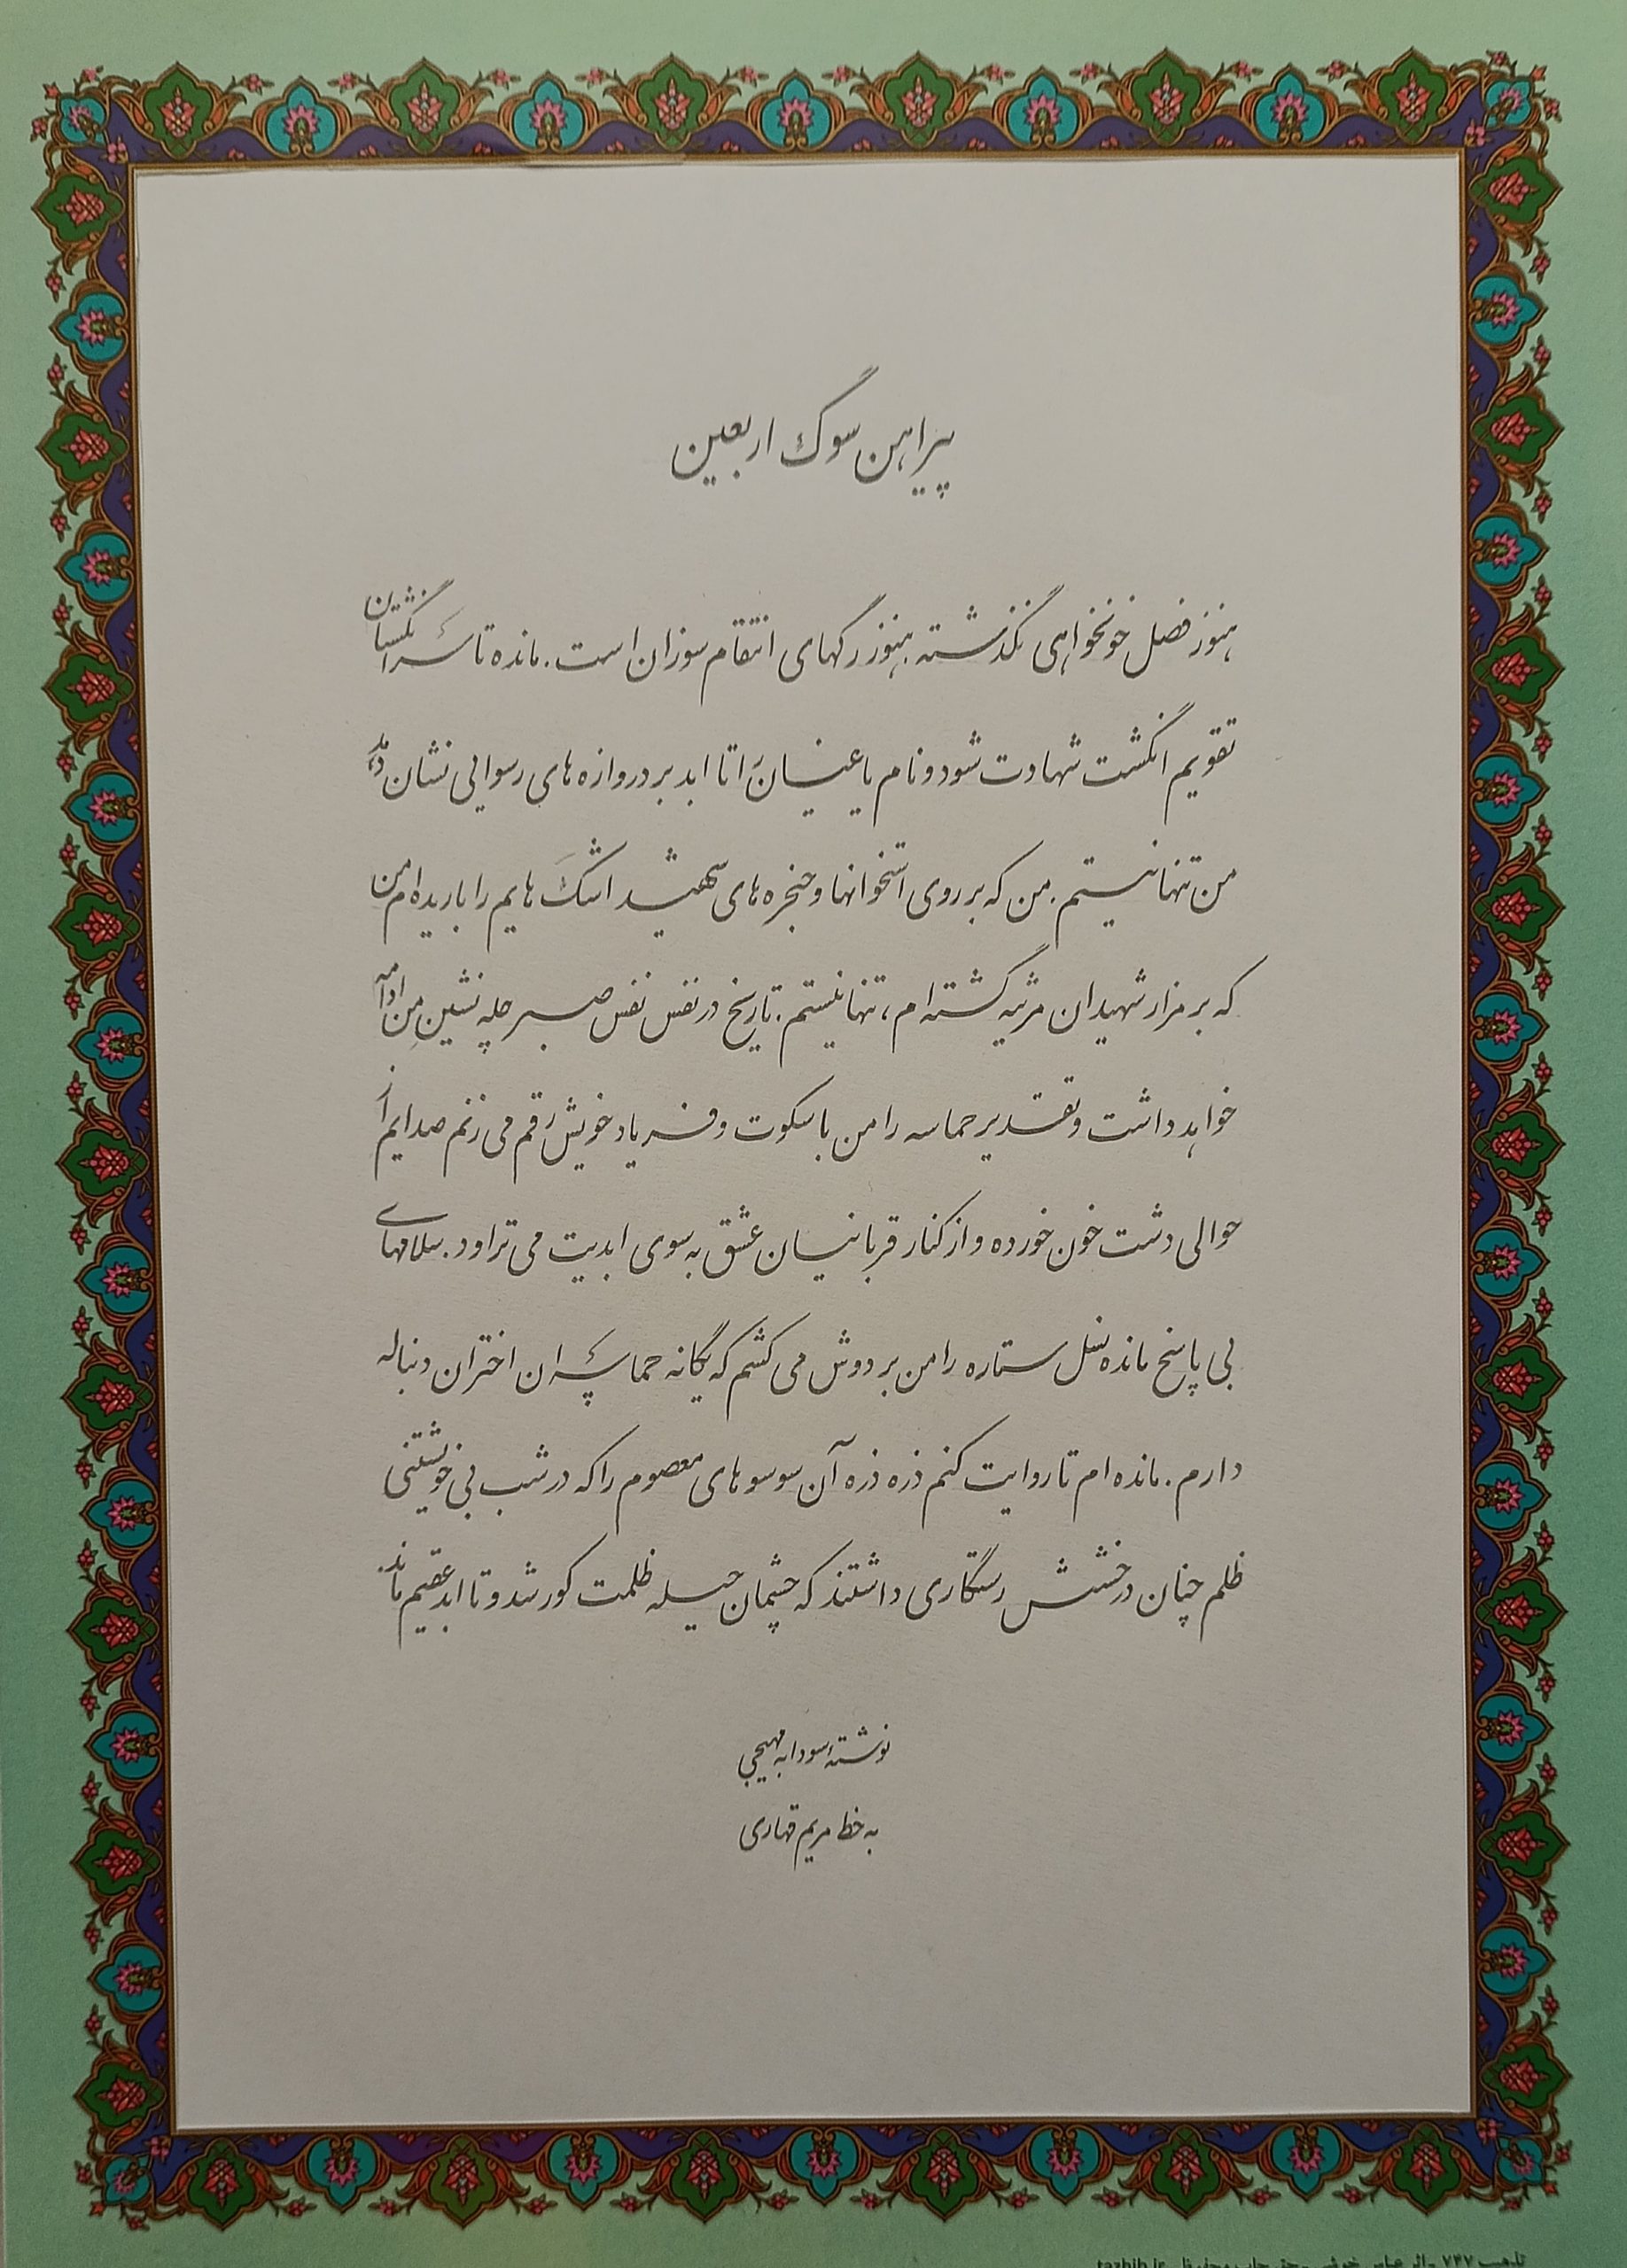 پیراهن سوگ اربعین
هنوز فصل خونخواهی نگذشته. هنوز رگهای انتقام سوزان است. مانده تا سرانگشتان
تقویم انگشت شهادت شود و نام یاغیان را تا ابد بر دروازه های رسوایی نشان دهد
من تنها نیستم. من که بر روی استخوانها و حنجره های شهید اشک هایم را باریده ام من
که بر مزار شهیدان مرثیه گشته ام، تنها نیستم. تاریخ در نفس نفس صبر چله نشین من ادامه
خواهد داشت و تقدیر حماسه را من با سکوت و فریاد خویش رقم می زنم صدایم از
حوالی دشت خون خورده و از کنار قربانیان عشق به سوی ابدیت می تراود. سلامهای
بی پاسخ مانده نسل ستاره را من بر دوش می کشم که یگانه حماسه اختران دنباله
دارم. مانده ام تا روایت کنم ذره ذره آن سوسوهای معصوم را که در شب بی خویشتنی
ظلم چنان درخشش رستگاری داشتند که چشمان حیله ظلمت کور شد و تا ابد عقیم ماند
نوشتهٔ سودابه مهیجی
به خط مریم قهاری
تذهیب ۷۴۷ ـ اثر عباس خوشی ـ حق چاپ محفوظ tazhib.ir